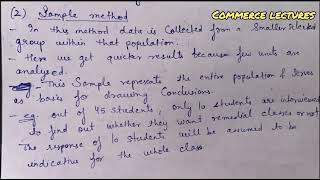 COMMERCE LECTURES
(2) Sample method
- In this method data is Collected from a Smaller Selected
group within that population.
- Here we get quicker results because few units are
analysed.
- This Sample represents the entire population & serves
as basis for drawing Conclusions.
- eg. out of 45 students, only 10 students are interviewed
to find out whether they want remedial classes or not.
The response of 10 students will be assumed to be
indicative for the whole class